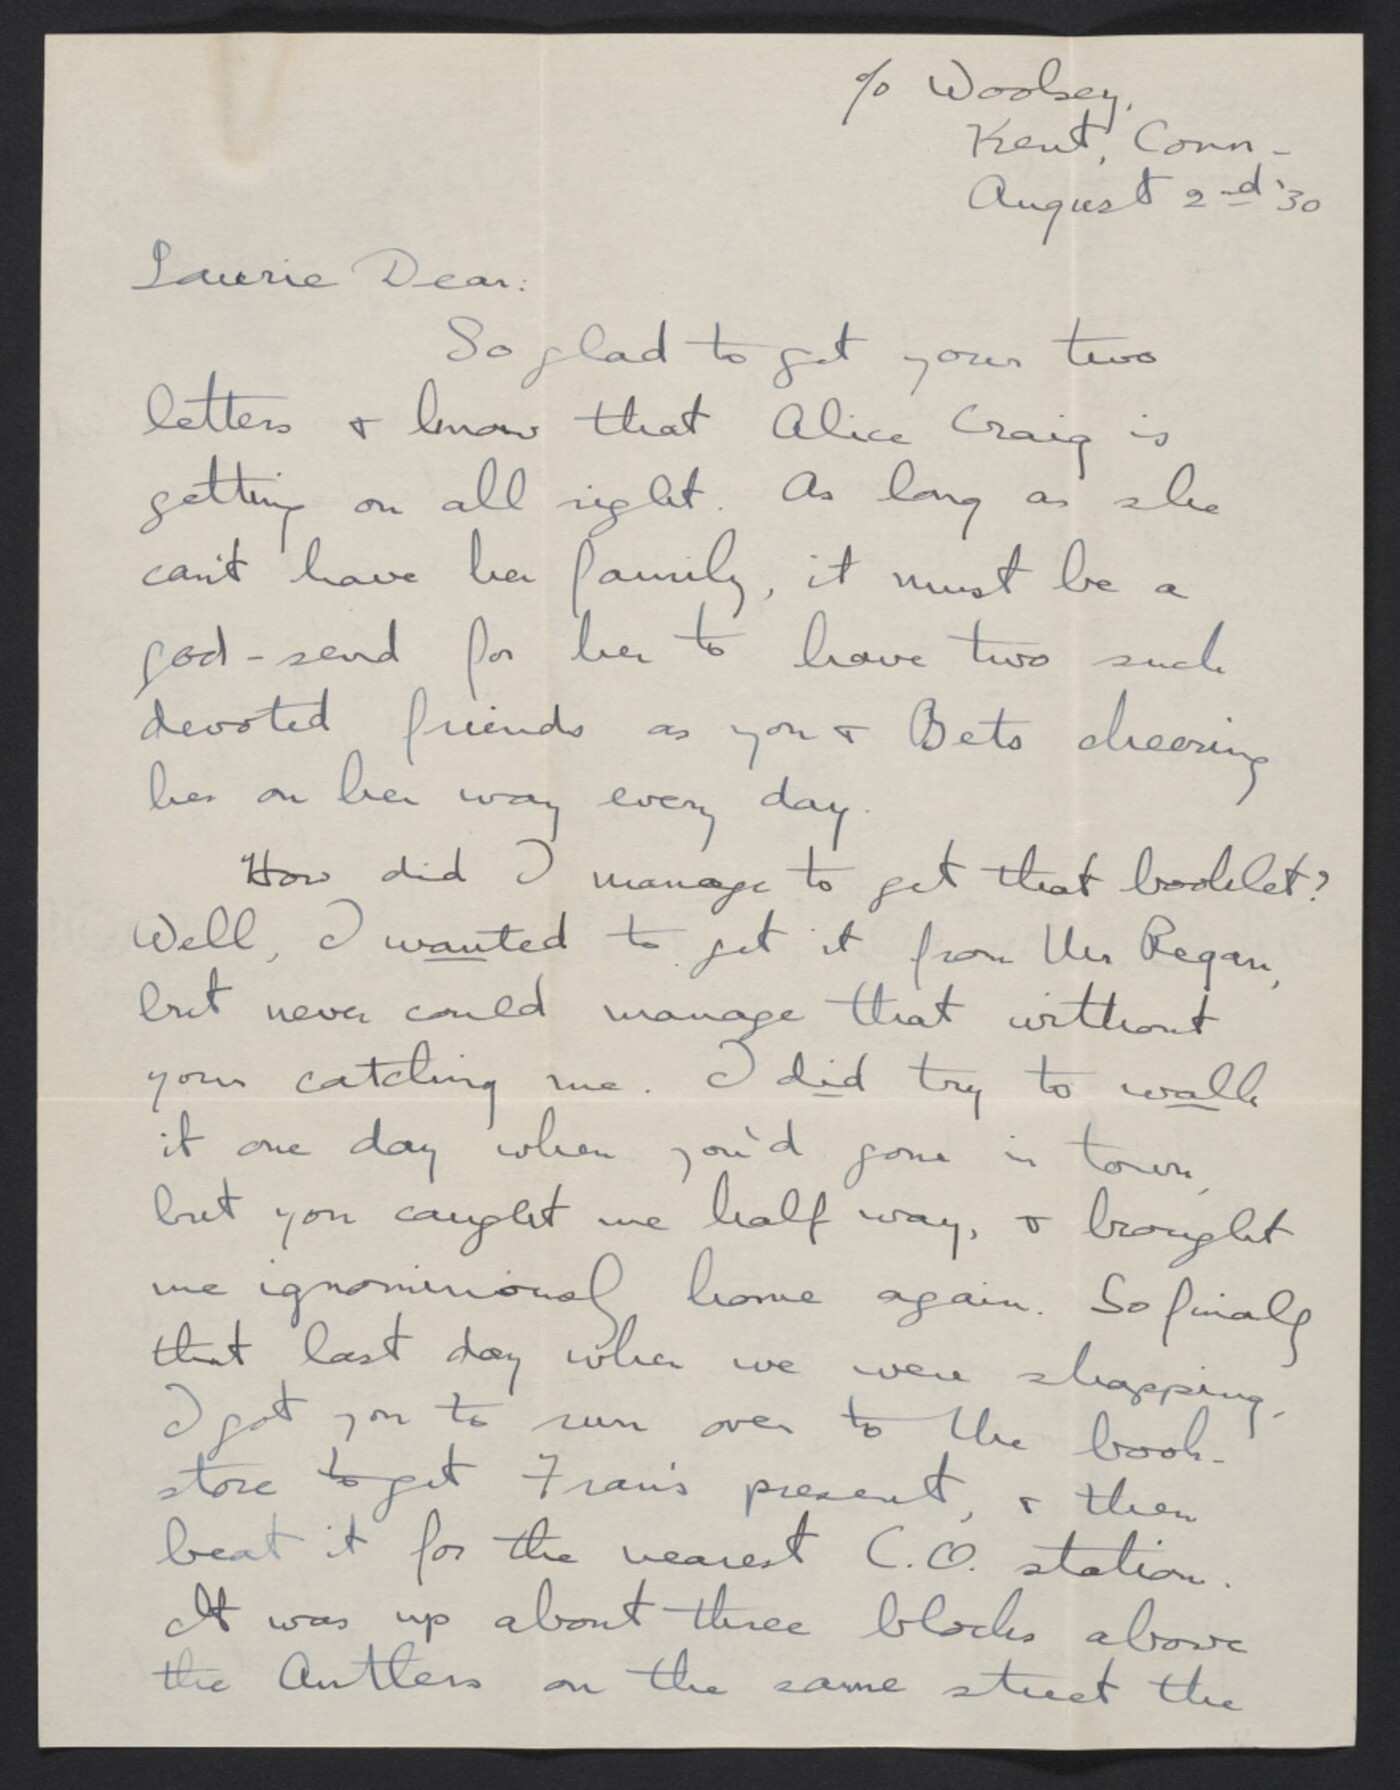 c/o Woolsey,
Kent, Conn -
August 2nd '30
Laurie Dear:
So glad to get your two
letters & know that Alice Craig is
getting on all right. As long as she
can't have her family, it must be a
god-send for her to have two such
devoted friends as you & Bets cheering
her on her way every day.
How did I manage to get that booklet?
Well, I wanted to get it from Mr Regan,
but never could manage that without
your catching me. I did try to walk
it one day when you'd gone in town,
but you caught me half way, & brought
me ignominiously home again. So finally
that last day when we were shopping,
I got you to run over to the book-
store to get Fran's present, & then
beat it for the nearest C.O. station.
It was up about three blocks above
the Antlers on the same street the